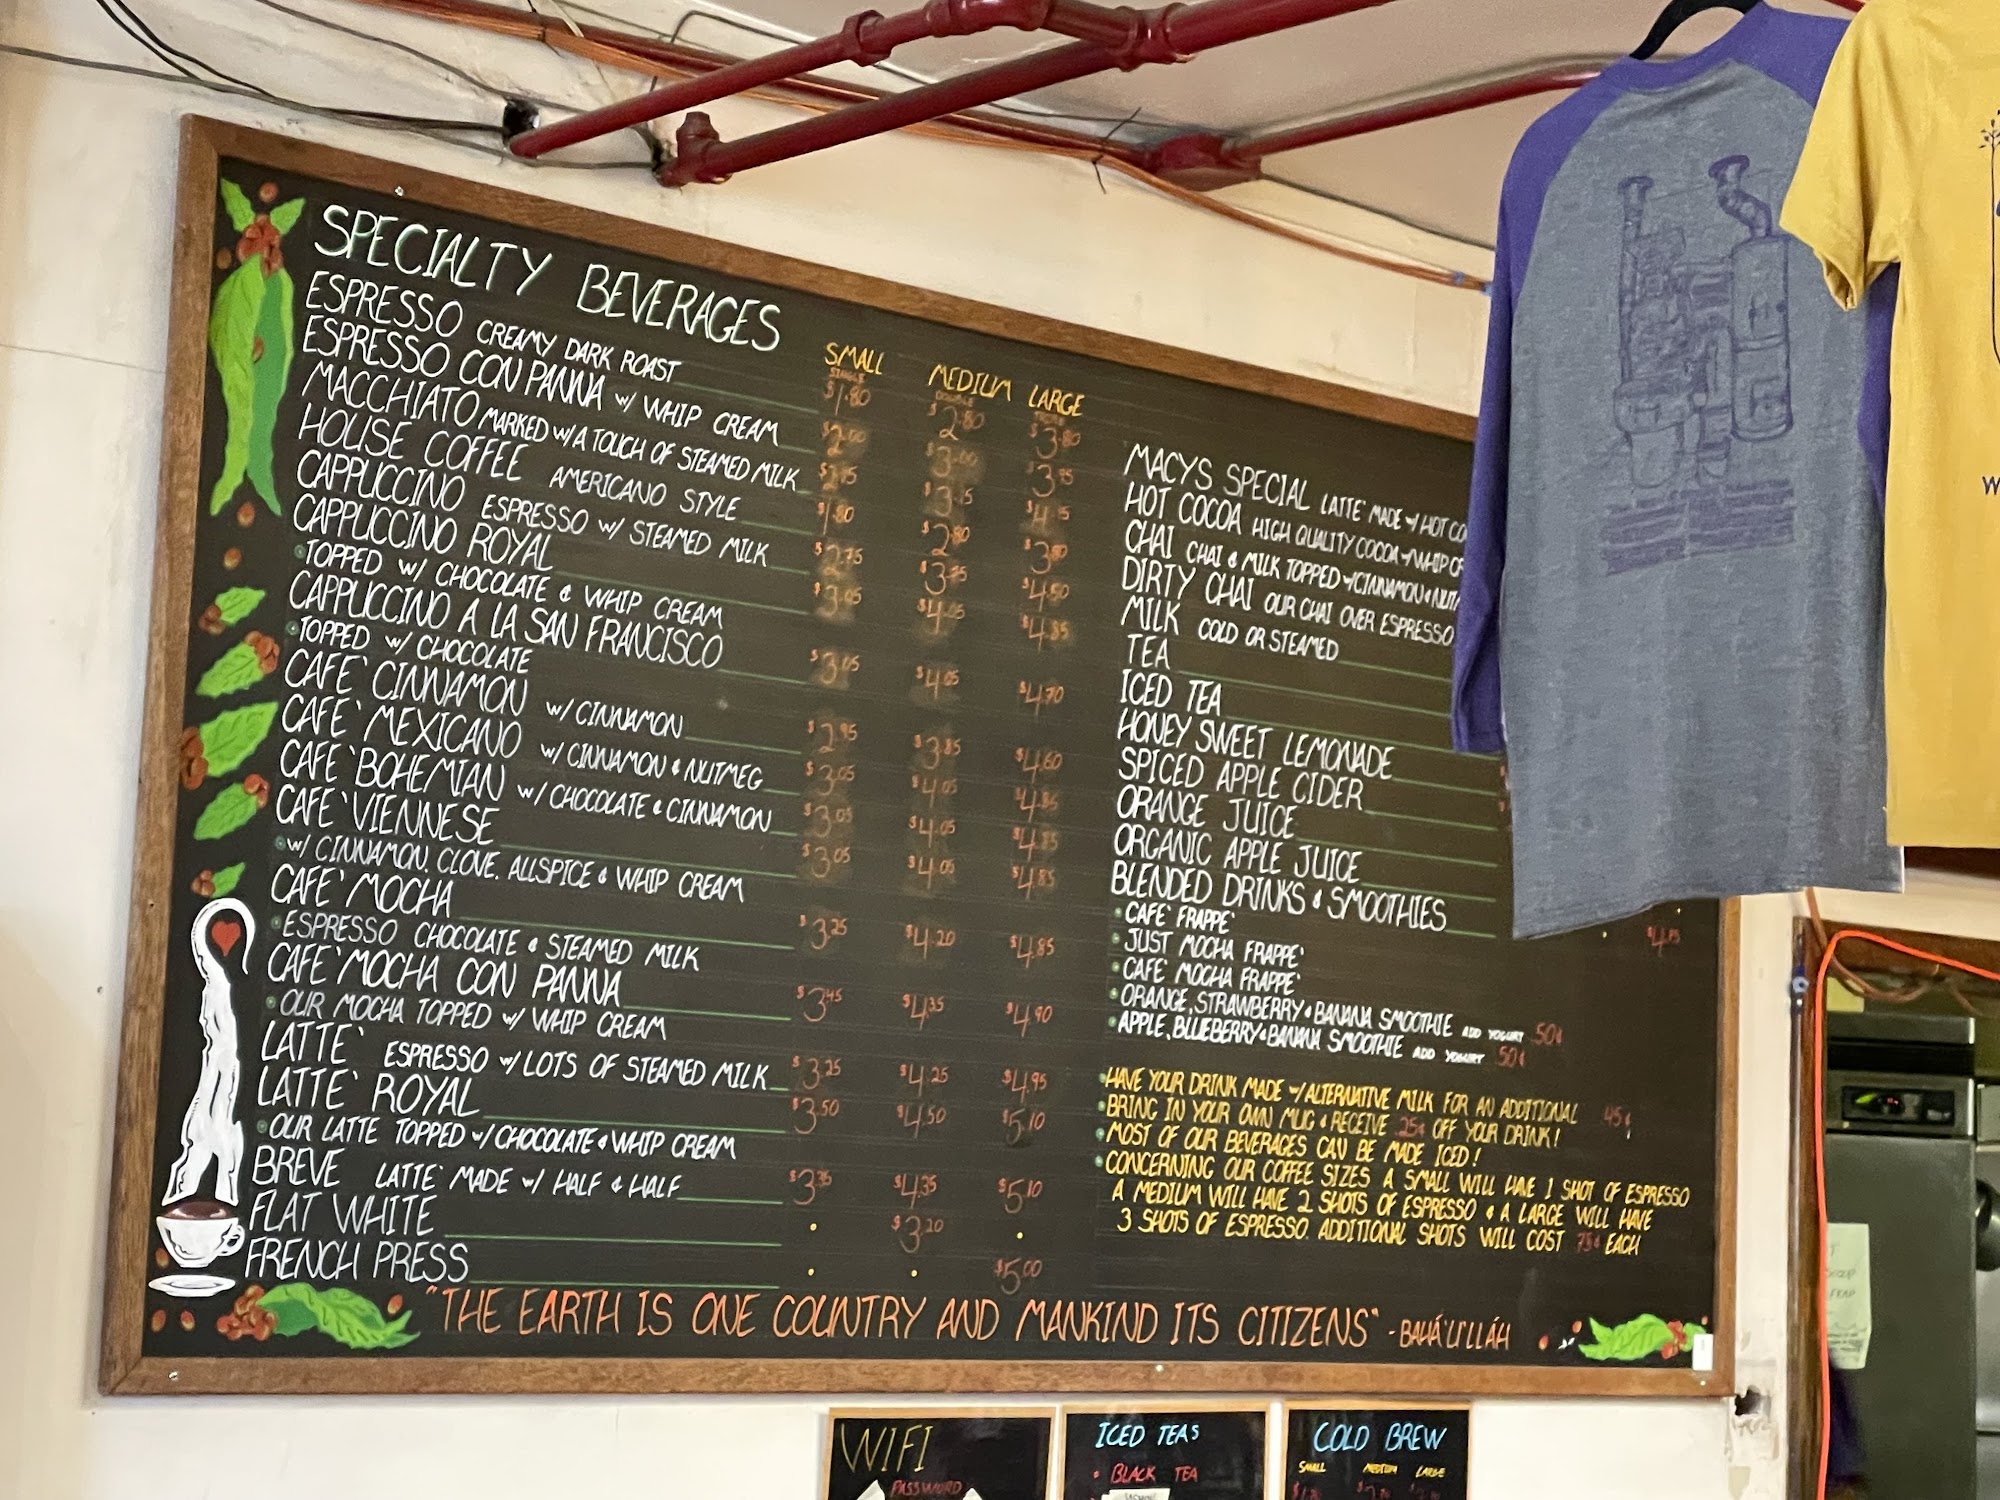 SPECIALTY BEVERAGES
SMALL MEDIUM LARGE
ESPRESSO CREAMY DARK ROAST $1.80 $2.80 $3.80
ESPRESSO CON PANNA W/ WHIP CREAM $2.00 $3.00 $3.95
MACCHIATO MARKED W/ A TOUCH OF STEAMED MILK $3.15 $4.15
HOUSE COFFEE AMERICANO STYLE $1.80 $2.80 $3.80
CAPPUCCINO ESPRESSO W/ STEAMED MILK $2.75 $4.50
CAPPUCCINO ROYAL $3.05 $4.05 $4.85
•TOPPED W/ CHOCOLATE & WHIP CREAM
CAPPUCCINO A LA SAN FRANCISCO $3.05 $4.05 $4.70
•TOPPED W/ CHOCOLATE
CAFE` CINNAMON W/ CINNAMON $2.95 $3.85 $4.60
CAFE` MEXICANO W/ CINNAMON & NUTMEG $3.05 $4.05 $4.85
CAFE` BOHEMIAN W/ CHOCOLATE & CINNAMON $3.05 $4.05 $4.85
CAFE` VIENNESE $3.05 $4.05 $4.85
•W/ CINNAMON, CLOVE, ALLSPICE & WHIP CREAM
CAFE` MOCHA $3.25 $4.20 $4.85
•ESPRESSO CHOCOLATE & STEAMED MILK
CAFE` MOCHA CON PANNA $3.45 $4.35 $4.90
•OUR MOCHA TOPPED W/ WHIP CREAM
LATTE` ESPRESSO W/ LOTS OF STEAMED MILK $3.25 $4.25 $4.95
LATTE` ROYAL $3.50 $4.50 $5.10
•OUR LATTE TOPPED W/ CHOCOLATE & WHIP CREAM
BREVE LATTE` MADE W/ HALF & HALF $3.35 $4.35 $5.10
FLAT WHITE • $3.20 •
FRENCH PRESS • • $5.00
MACYS SPECIAL LATTE` MADE W/ HOT
HOT COCOA HIGH QUALITY COCOA W/ WHIP
CHAI CHAI & MILK TOPPED W/ CINNAMON &
DIRTY CHAI OUR CHAI OVER ESPRESSO
MILK COLD OR STEAMED
TEA
ICED TEA
HONEY SWEET LEMONADE
SPICED APPLE CIDER
ORANGE JUICE
ORGANIC APPLE JUICE
BLENDED DRINKS & SMOOTHIES
•CAFE` FRAPPE`
•JUST MOCHA FRAPPE`
•CAFE` MOCHA FRAPPE`
•ORANGE, STRAWBERRY & BANANA SMOOTHIE ADD YOGURT 50¢
•APPLE, BLUEBERRY & BANANA SMOOTHIE ADD YOGURT 50¢
•HAVE YOUR DRINK MADE W/ ALTERNATIVE MILK FOR AN ADDITIONAL 45¢
•BRING IN YOUR OWN MUG & RECEIVE 25¢ OFF YOUR DRINK!
•MOST OF OUR BEVERAGES CAN BE MADE ICED!
•CONCERNING OUR COFFEE SIZES A SMALL WILL HAVE 1 SHOT OF ESPRESSO
A MEDIUM WILL HAVE 2 SHOTS OF ESPRESSO & A LARGE WILL HAVE
3 SHOTS OF ESPRESSO. ADDITIONAL SHOTS WILL COST 75¢ EACH
"THE EARTH IS ONE COUNTRY AND MANKIND ITS CITIZENS" -BAHÁ'U'LLÁH
WIFI
PASSWORD
ICED TEAS
• BLACK TEA
COLD BREW
SMALL MEDIUM LARGE